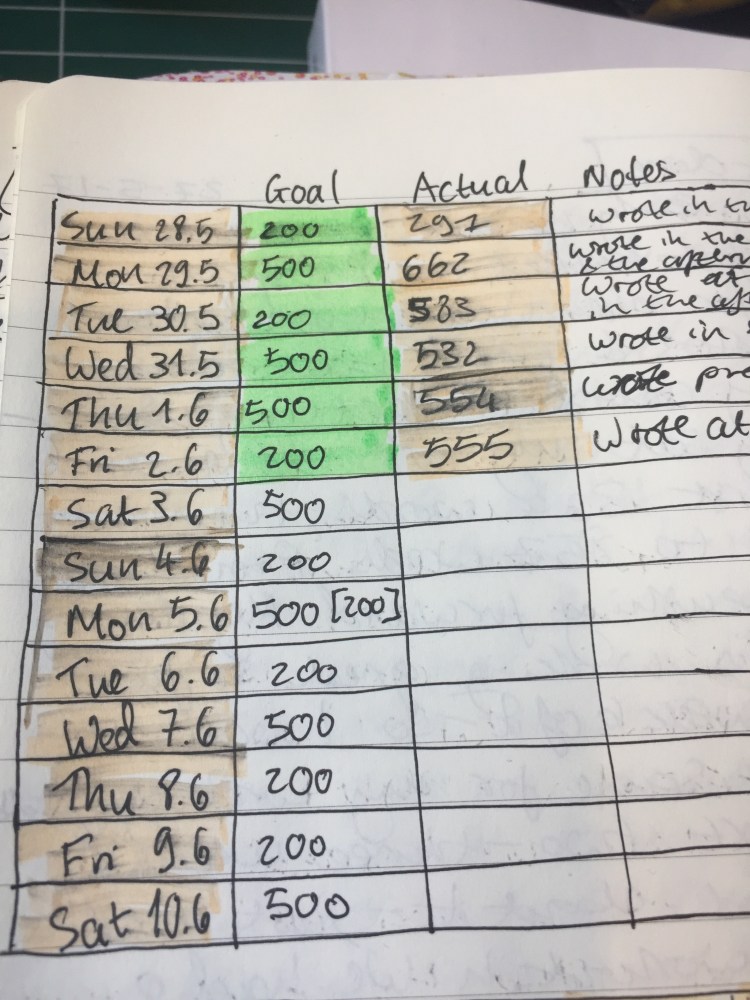 Goal Actual Notes
Sun 28.5 200 291 wrote in
Mon 29.5 500 662 wrote in the
& the
Tue 30.5 200 583 wrote at
in the
Wed 31.5 500 532 wrote in
Thu 1.6 500 554 wrote
Fri 2.6 200 555 Wrote at
Sat 3.6 500
Sun 4.6 200
Mon 5.6 500 [200]
Tue 6.6 200
Wed 7.6 500
Thu 8.6 200
Fri 9.6 200
Sat 10.6 500